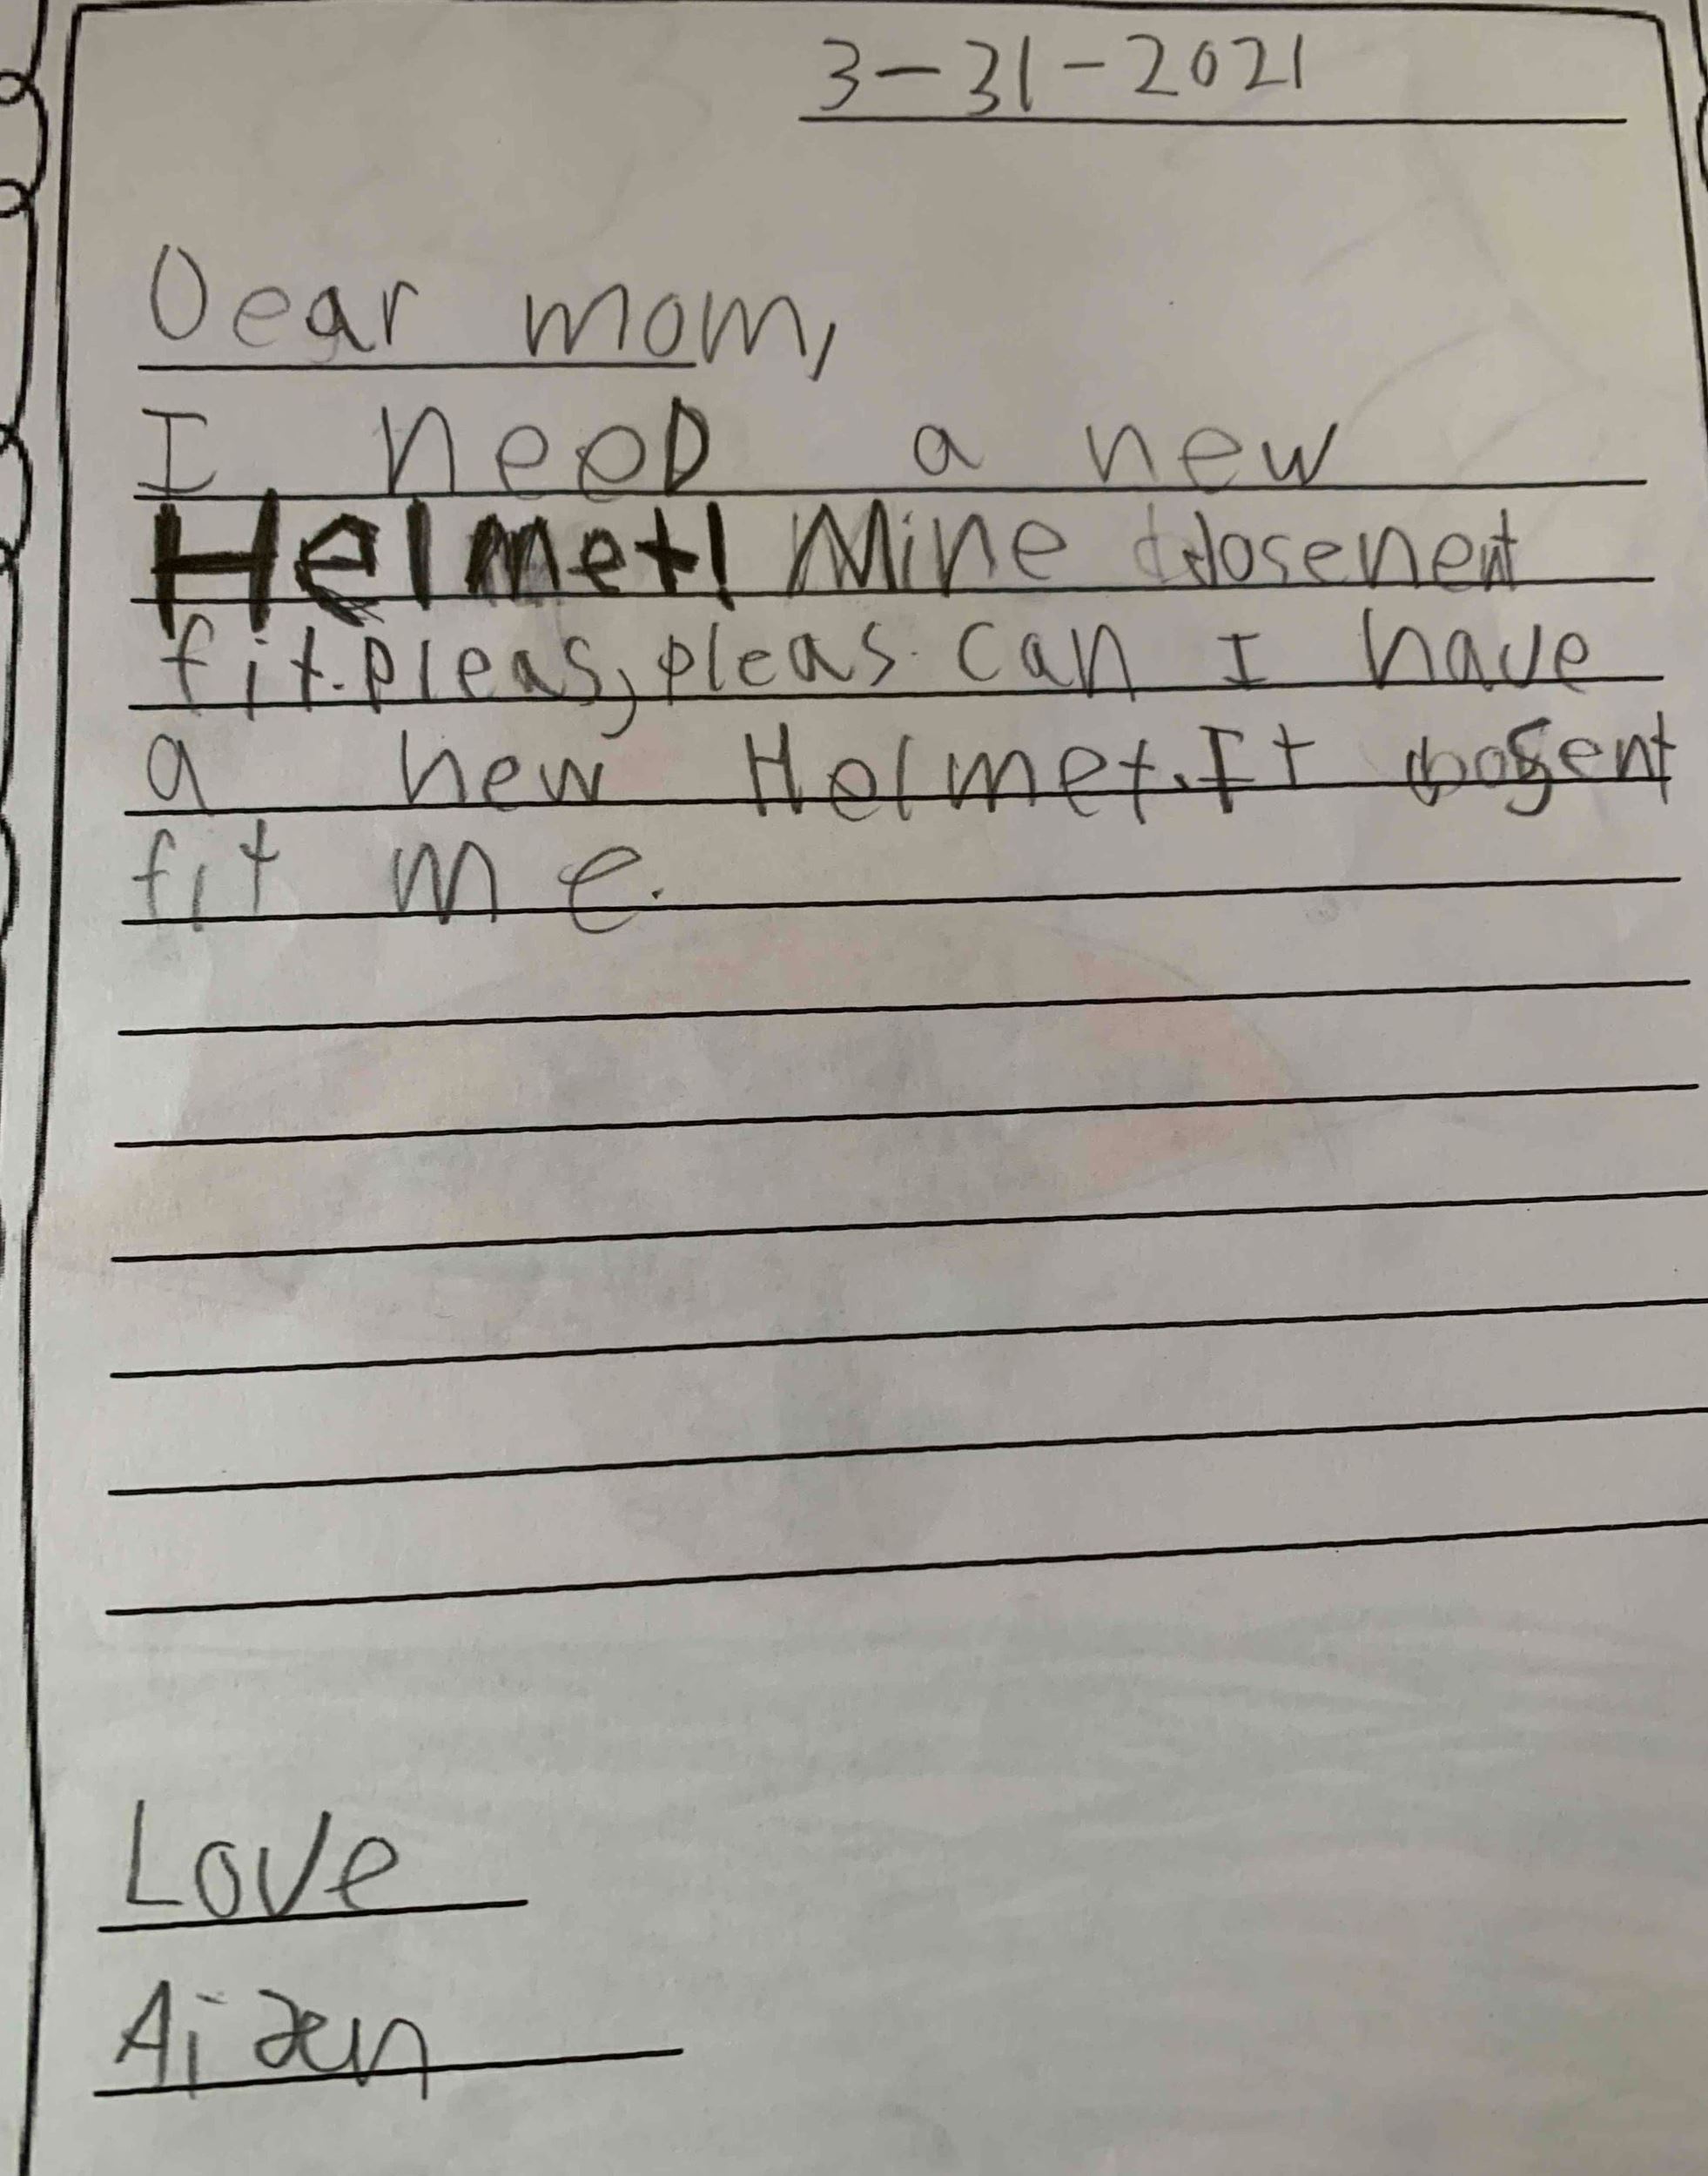 3-31-2021
Dear mom,
I neeD a new
Helmet! Mine dosenent
fit. pleas, pleas can I have
a new Helmet. It dosent
fit me.
Love
Aiden